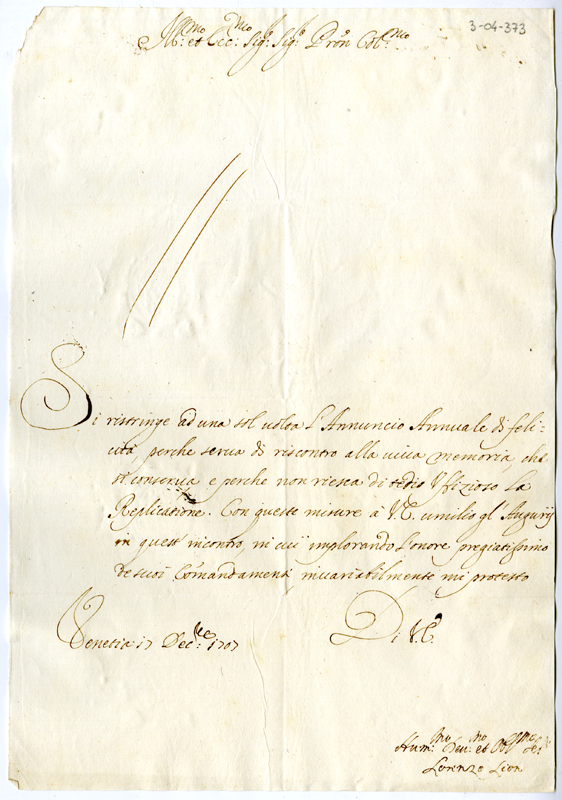 3-04-373
Ill:mo et Ecc:mo Sig:r Sig:r Pron Col:mo
Si ristringe ad una sol uolta l'Annuncio Annuale di feli-
cità perche serua di riscontro alla uiua memoria, che
si conserua e perche non riesca di tedio Vfizioso la
Replicatione. Con queste misure a V.E. umilio gl'Augurij
in quest'incontro, in cui implorando l'onore pregiatissimo
de suoi Comandamenti inuariabilmente mi protesto
Di V.E.
Venetia 17 Dec:bre 1707
Hum:mo Deu:mo et Obl:mo Se:r
Lorenzo Lion